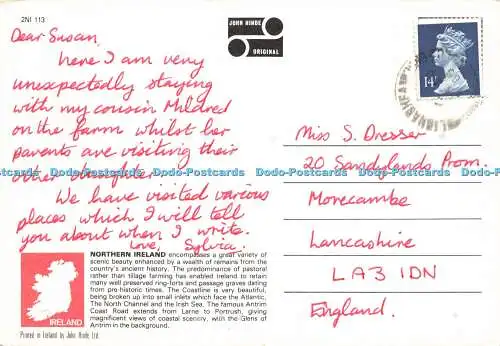 2NI 113
JOHN HINDE
ORIGINAL
14P
Dear Susan,
here I am very
unexpectedly staying
with my cousin Mildred
on the farm whilst her
parents are visiting their
other daughter.
We have visited various
places which I will tell
you about when I write.
Love, Sylvia.
Miss S. Dresser
20 Sandylands Prom.
Morecambe
Lancashire
LA3 1DN
England.
Dodo-Postcards Dodo-Postcards Dodo-Postcards Dodo-Postcards Dodo-Postcards Dodo-Postcards
NORTHERN IRELAND encompasses a great variety of
scenic beauty enhanced by a wealth of remains from the
country's ancient history. The predominance of pastoral
rather than tillage farming has enabled Ireland to retain
many well preserved ring-forts and passage graves dating
from pre-historic times. The Coastline is very beautiful,
being broken up into small inlets which face the Atlantic,
The North Channel and the Irish Sea. The famous Antrim
Coast Road extends from Larne to Portrush, giving
magnificent views of coastal scenery, with the Glens of
Antrim in the background.
IRELAND
Printed in Ireland by John Hinde Ltd.